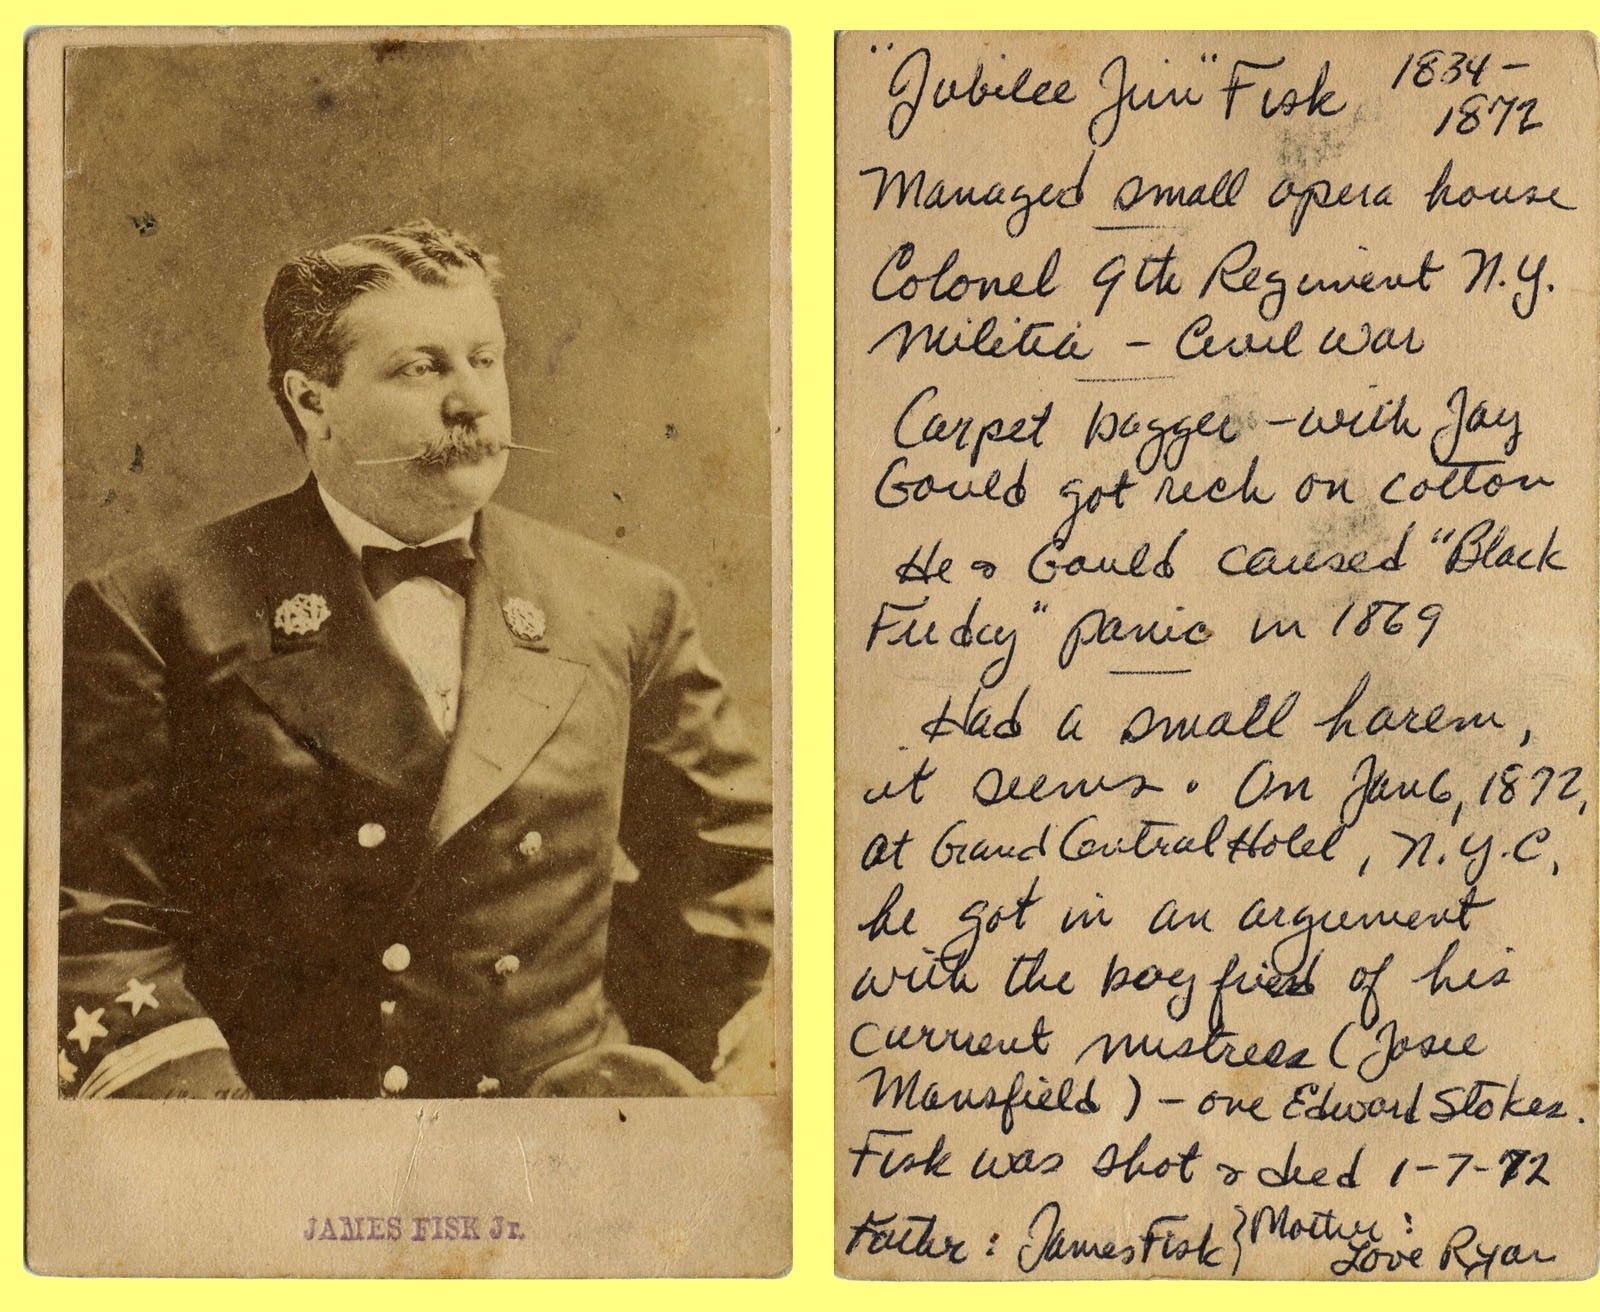 JAMES FISK Jr.
"Jubilee Jim" Fisk 1834-
1872
Managed small opera house
Colonel 9th Regiment N.Y.
Militia - Civil War
Carpet bagger - with Jay
Gould got rich on cotton
He & Gould caused "Black
Friday" panic in 1869
Had a small harem,
it seems. On Jan 6, 1872,
at Grand Central Hotel, N.Y.C,
he got in an argument
with the boyfriend of his
current mistress (Josee
Mansfield) - one Edward Stokes.
Fisk was shot & died 1-7-72
Father: James Fisk } Mother:
Love Ryan